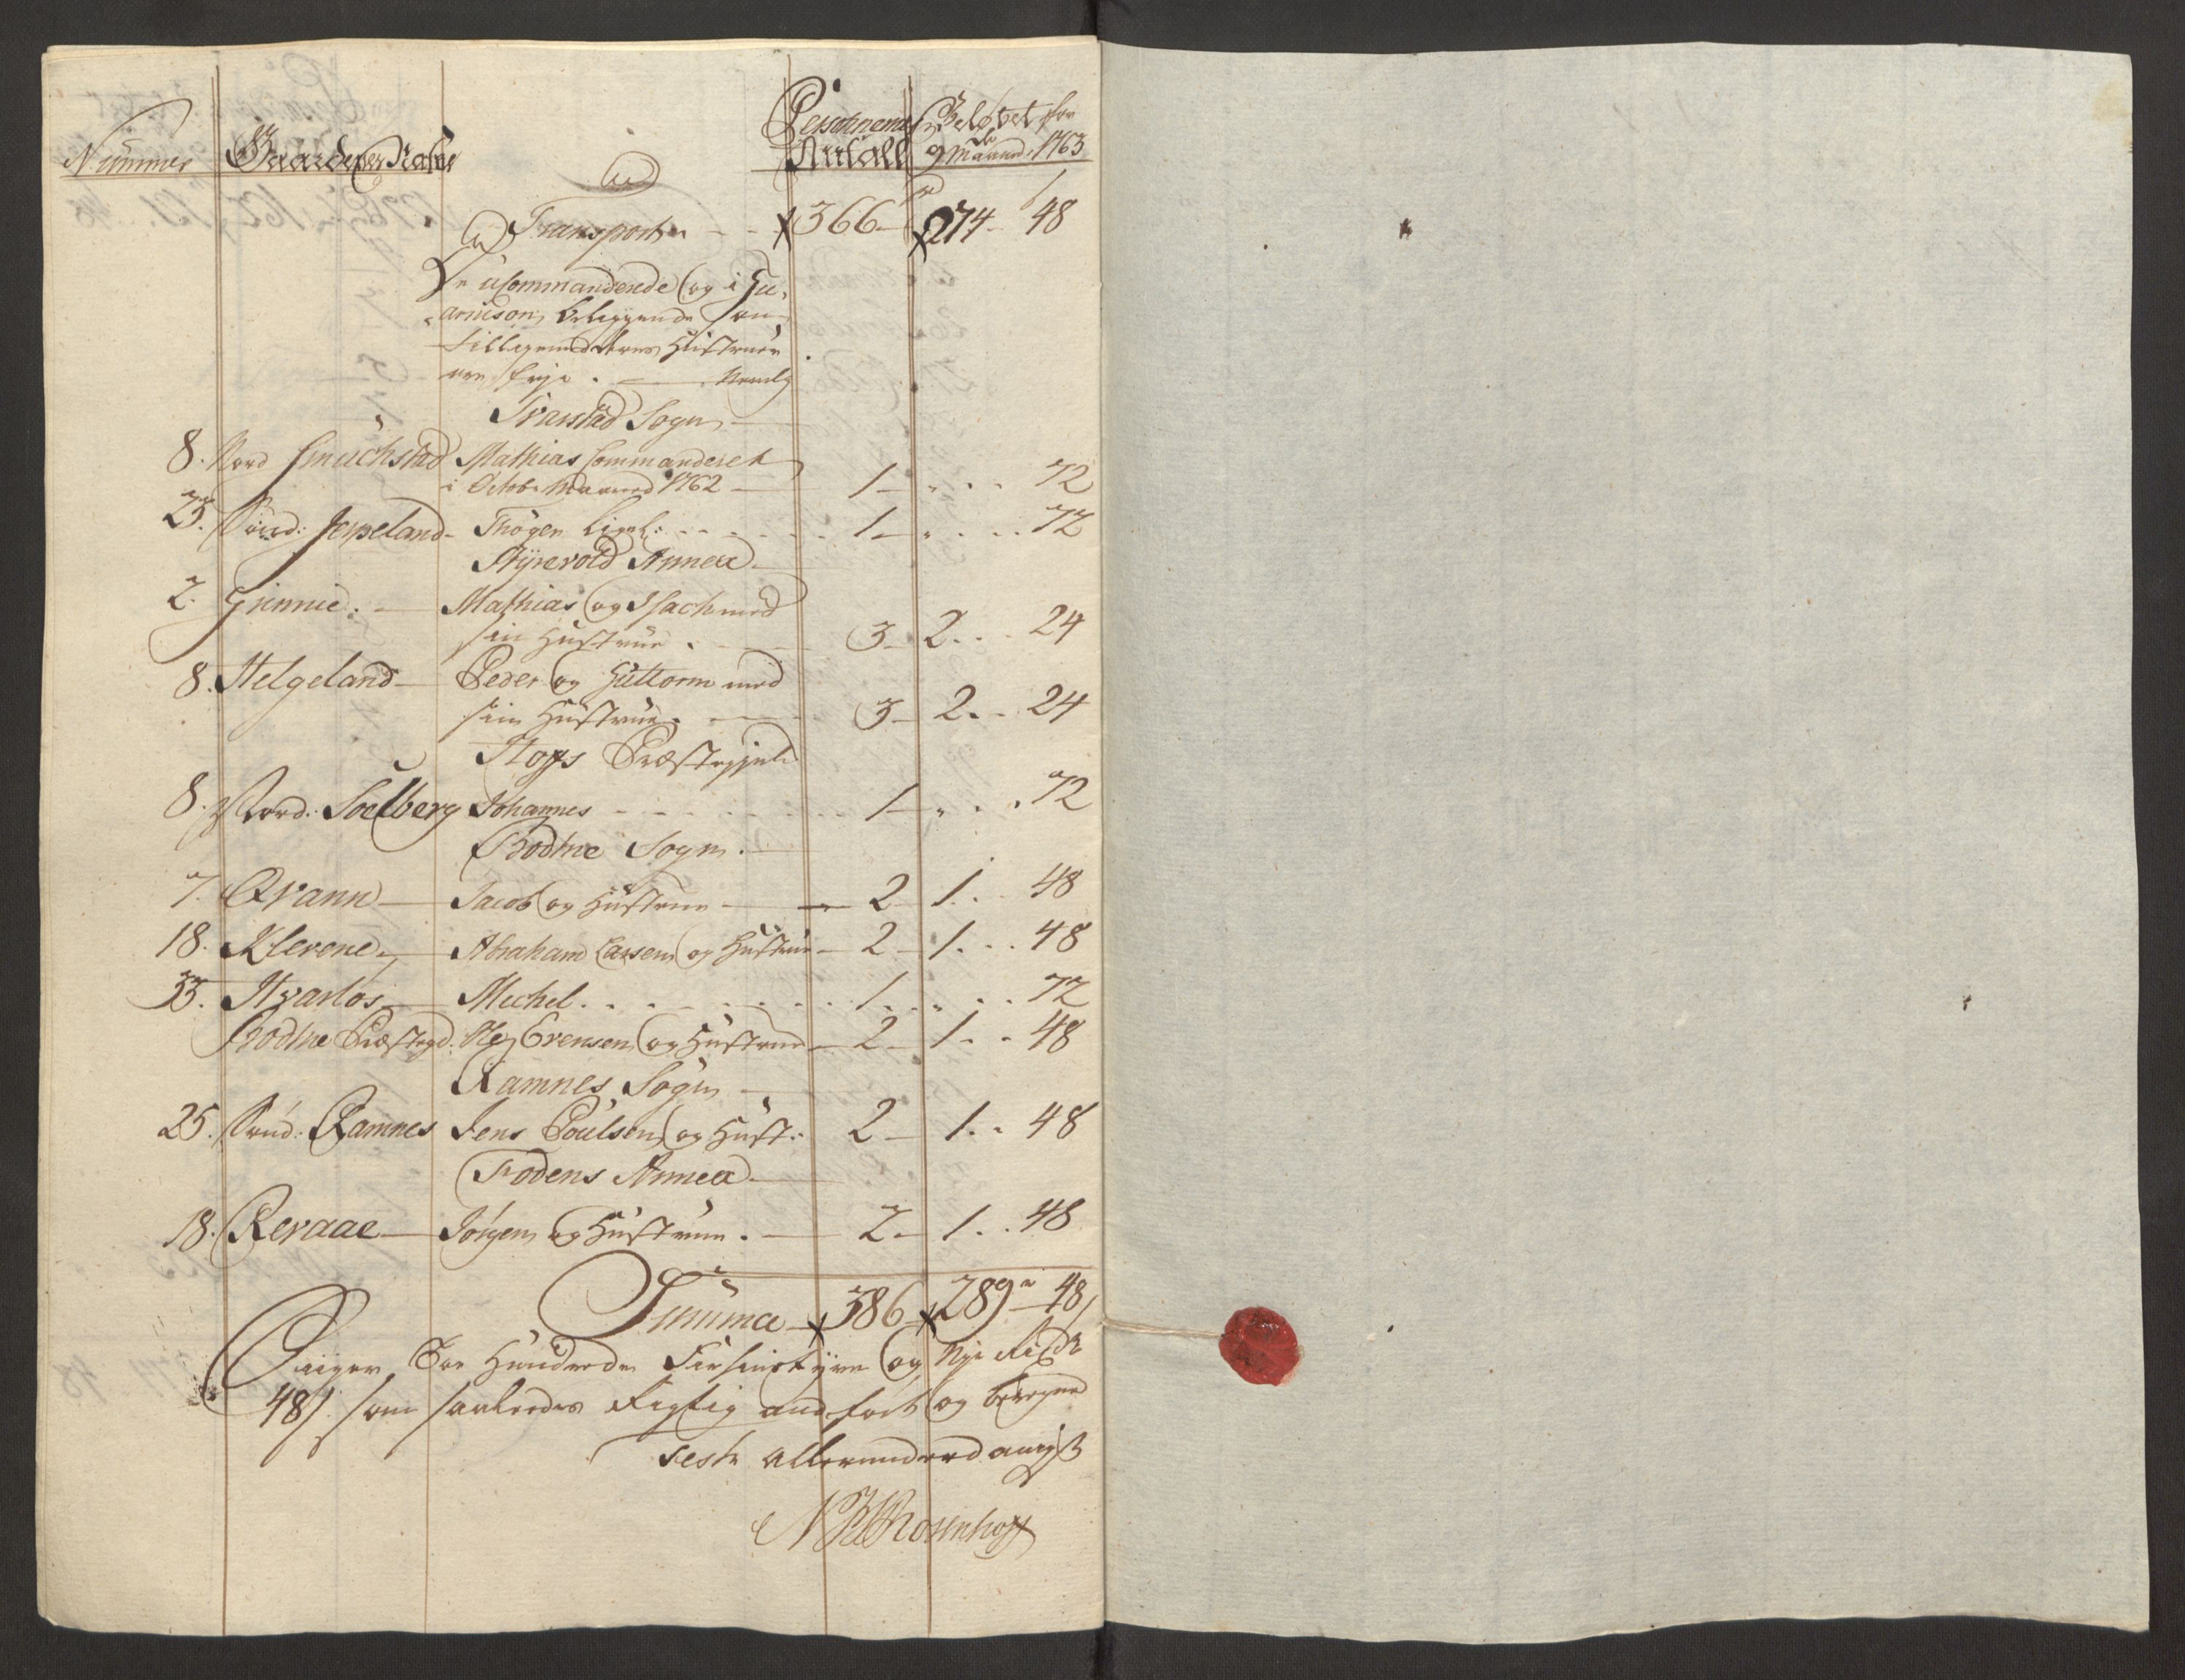 Nummer Gaardenes Nafne Persohnernes Antall Beløbet for de 9 Maaned: 1763
Transport 366 274 48
De uCommanderede og i Gu-
arnison beliggende som
tilligemed deres Hustruer
ere frje. Nemlig
Svarstad Sogn
8. Nord Fmuchstad Mathias Commanderet
i Octobr Maaned 1762 1 72
23. Sønd: Jerpeland Thøger 1 72
Hyrevold Annex
2. Grinnie Mathias og Isach med
sin Hustrue 3 2 24
8. Helgeland Peder og Guttorm med
sin Hustrue 3 2 24
Hoffs Præstegield
8. Nord: Soelberg Johannes 1 72
Bodtne Sogn
7. Qvann Jacob og Hustrue 2 1 48
18. Klevene Abraham Larsen og Hustrue 2 1 48
33. Hvarlos Michel 1 72
Bodtne Præstegd: Ole Evensen og Hustrue 2 1 48
Ramnes Sogn
25. Sønd: Ramnes Jens Poulsen og Hust: 2 1 48
Fodens Annex
18. Revaae Jørgen og Hustrue 2 1 48
Summa 386 289 48
Siiger Toe Hundrede Fiirsindstyve og Nye Rixdr
48 s: som saaledes Rigtig andført og beregnet
teste Allerunderdanigst
N Rosenhoff